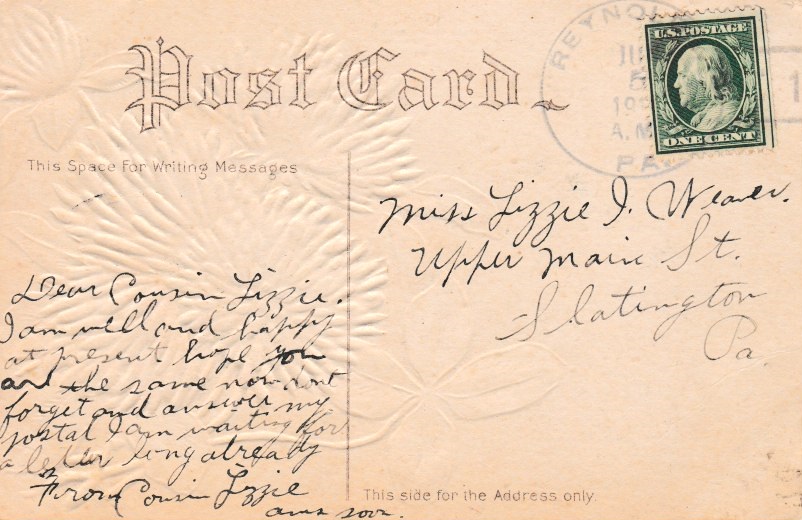 Post Card
REYNOL
5
19
A.M.
PA
1
U.S. POSTAGE
ONE CENT
This Space For Writing Messages
Dear Cousin Lizzie.
I am well and happy
at present hope you
are the same now dont
forget and answer my
postal I am waiting for
a letter long already
From Cousin Lizzie
ans soon.
Miss Lizzie I. Weaver.
Upper Main St.
Slatington
Pa.
This side for the Address only.